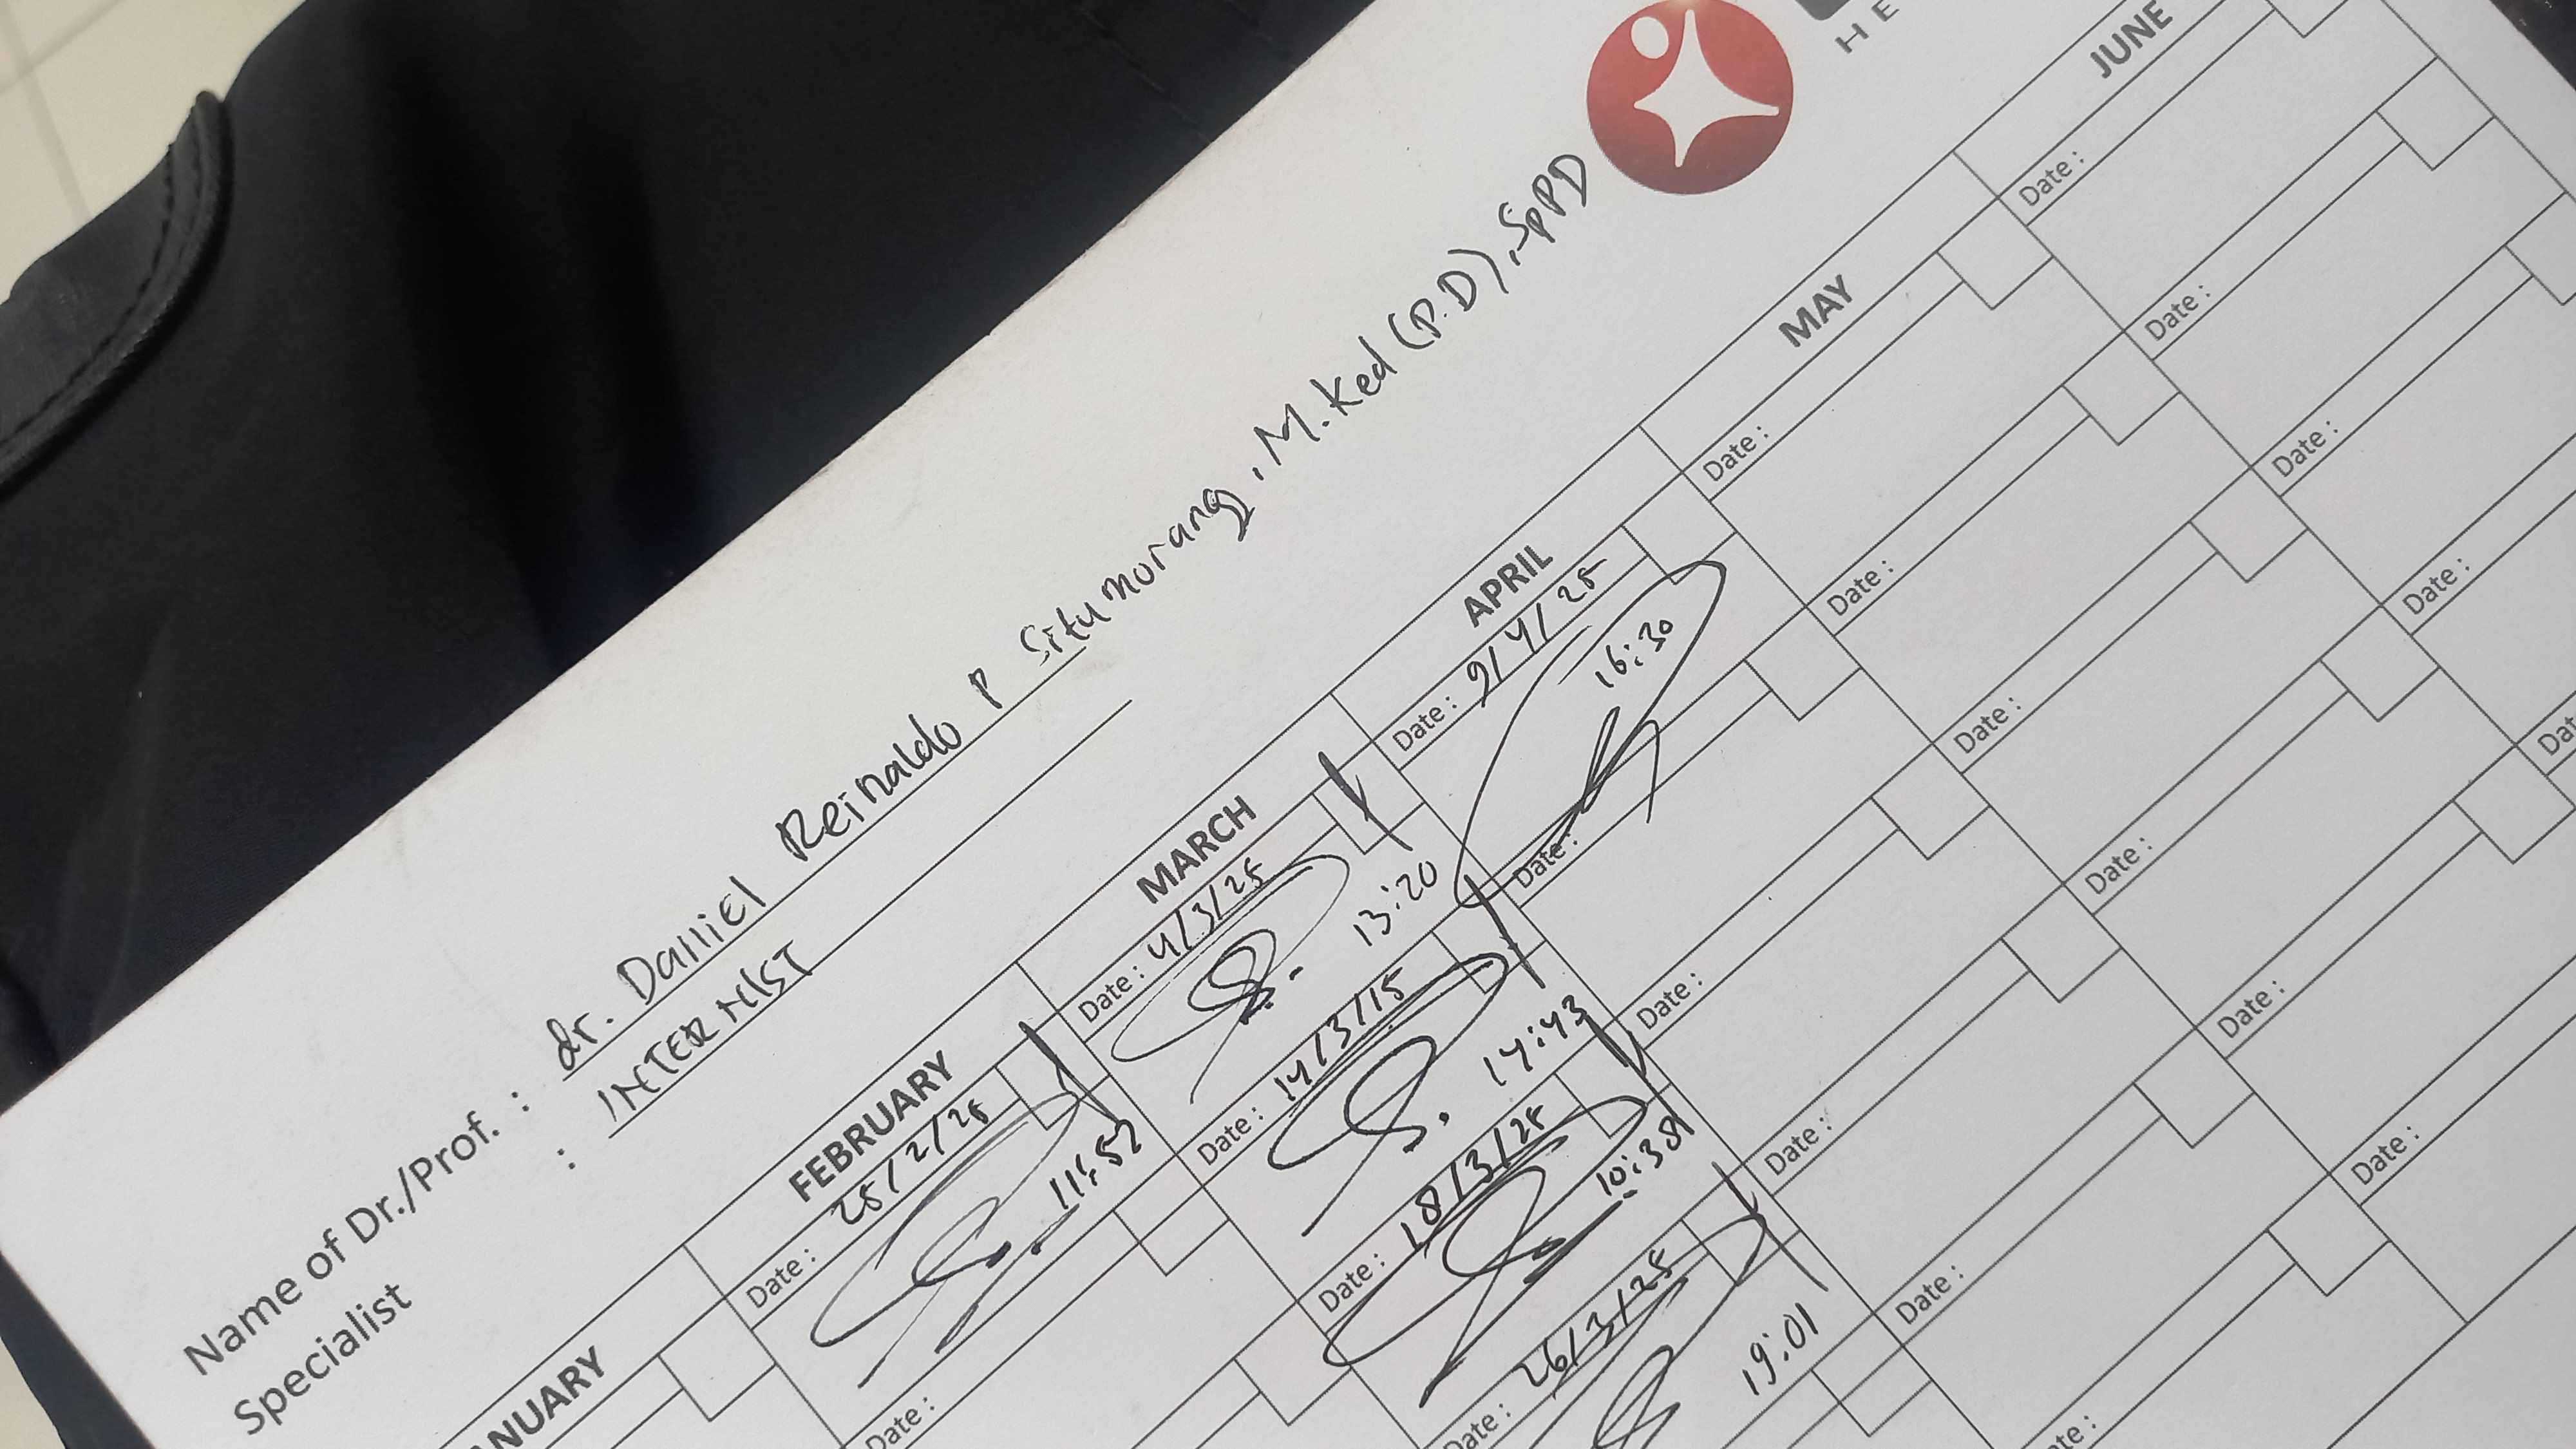 HE
Name of Dr./Prof. : dr. Daniel Reinaldo P Situmorang, M.Ked (P.D), SpPD
Specialist : INTERNIST
ANUARY FEBRUARY MARCH APRIL MAY JUNE
Date : 25/2/25
11:52
Date :
Date : 4/3/25
13:20
Date : 14/3/15
14:43
Date : 18/3/25
10:38
Date : 26/3/25
19:01
Date : 9/4/25
16:30
Date :
Date :
Date :
Date :
Date :
Date :
Date :
Date :
Date :
Date :
Date :
te :
Date :
Date :
Date :
Date :
Date :
Date :
Dat